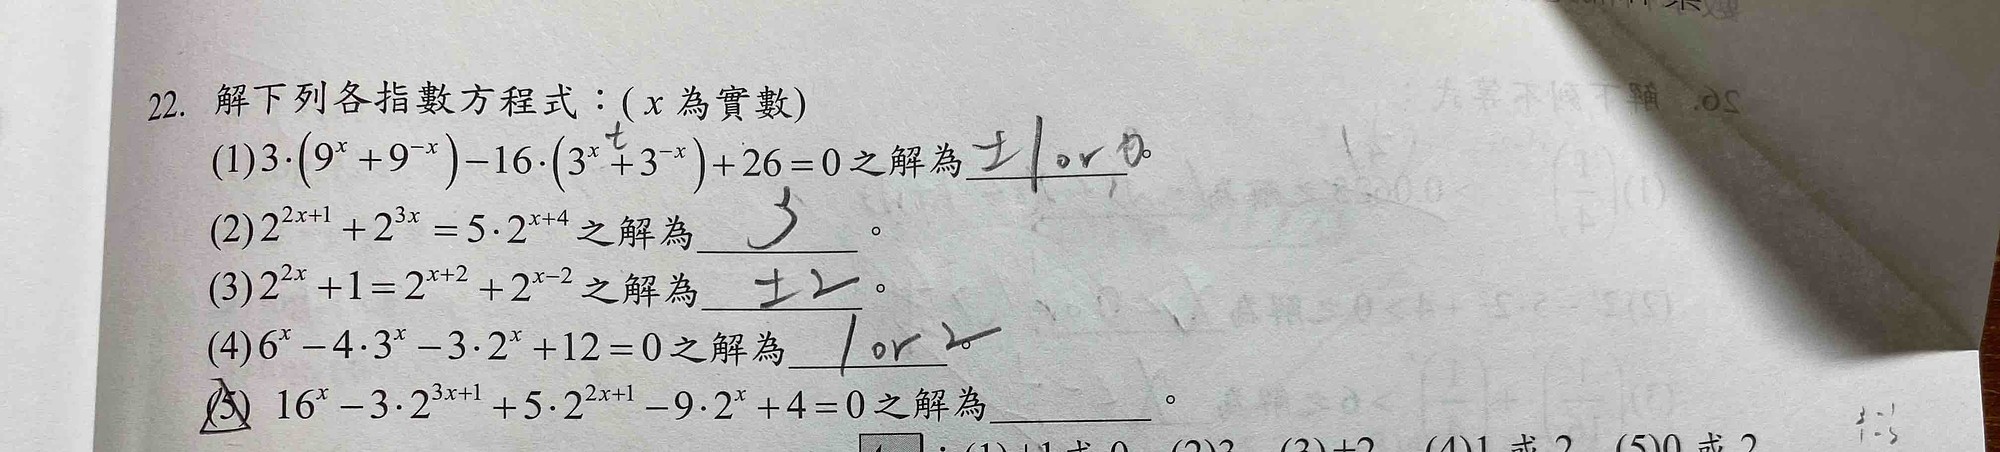 22. 解下列各指數方程式：( x 為實數)
(1) 3·(9^x + 9^{-x}) − 16·(3^x + 3^{-x}) + 26 = 0 之解為 ±1 or 0。
t
(2) 2^{2x+1} + 2^{3x} = 5·2^{x+4} 之解為 3 。
(3) 2^{2x} + 1 = 2^{x+2} + 2^{x−2} 之解為 ±2 。
(4) 6^x − 4·3^x − 3·2^x + 12 = 0 之解為 1 or 2。
(5) 16^x − 3·2^{3x+1} + 5·2^{2x+1} − 9·2^x + 4 = 0 之解為 。
: (1)±1或 0 (2)3 (3)±2 (4)1 或 2 (5)0 或 2